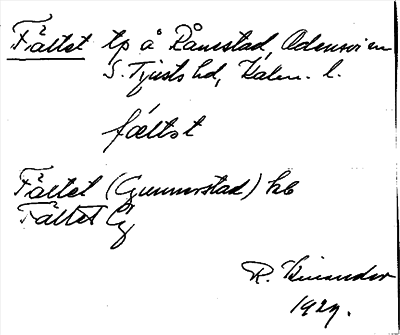 Fältet tp å Rånestad, Odensvi sn
S. Tjusts hd, Kalm. l.
fæltət
Fältet (Gunnerstad) hb
Fältet Cg
R. Kinander
1929.